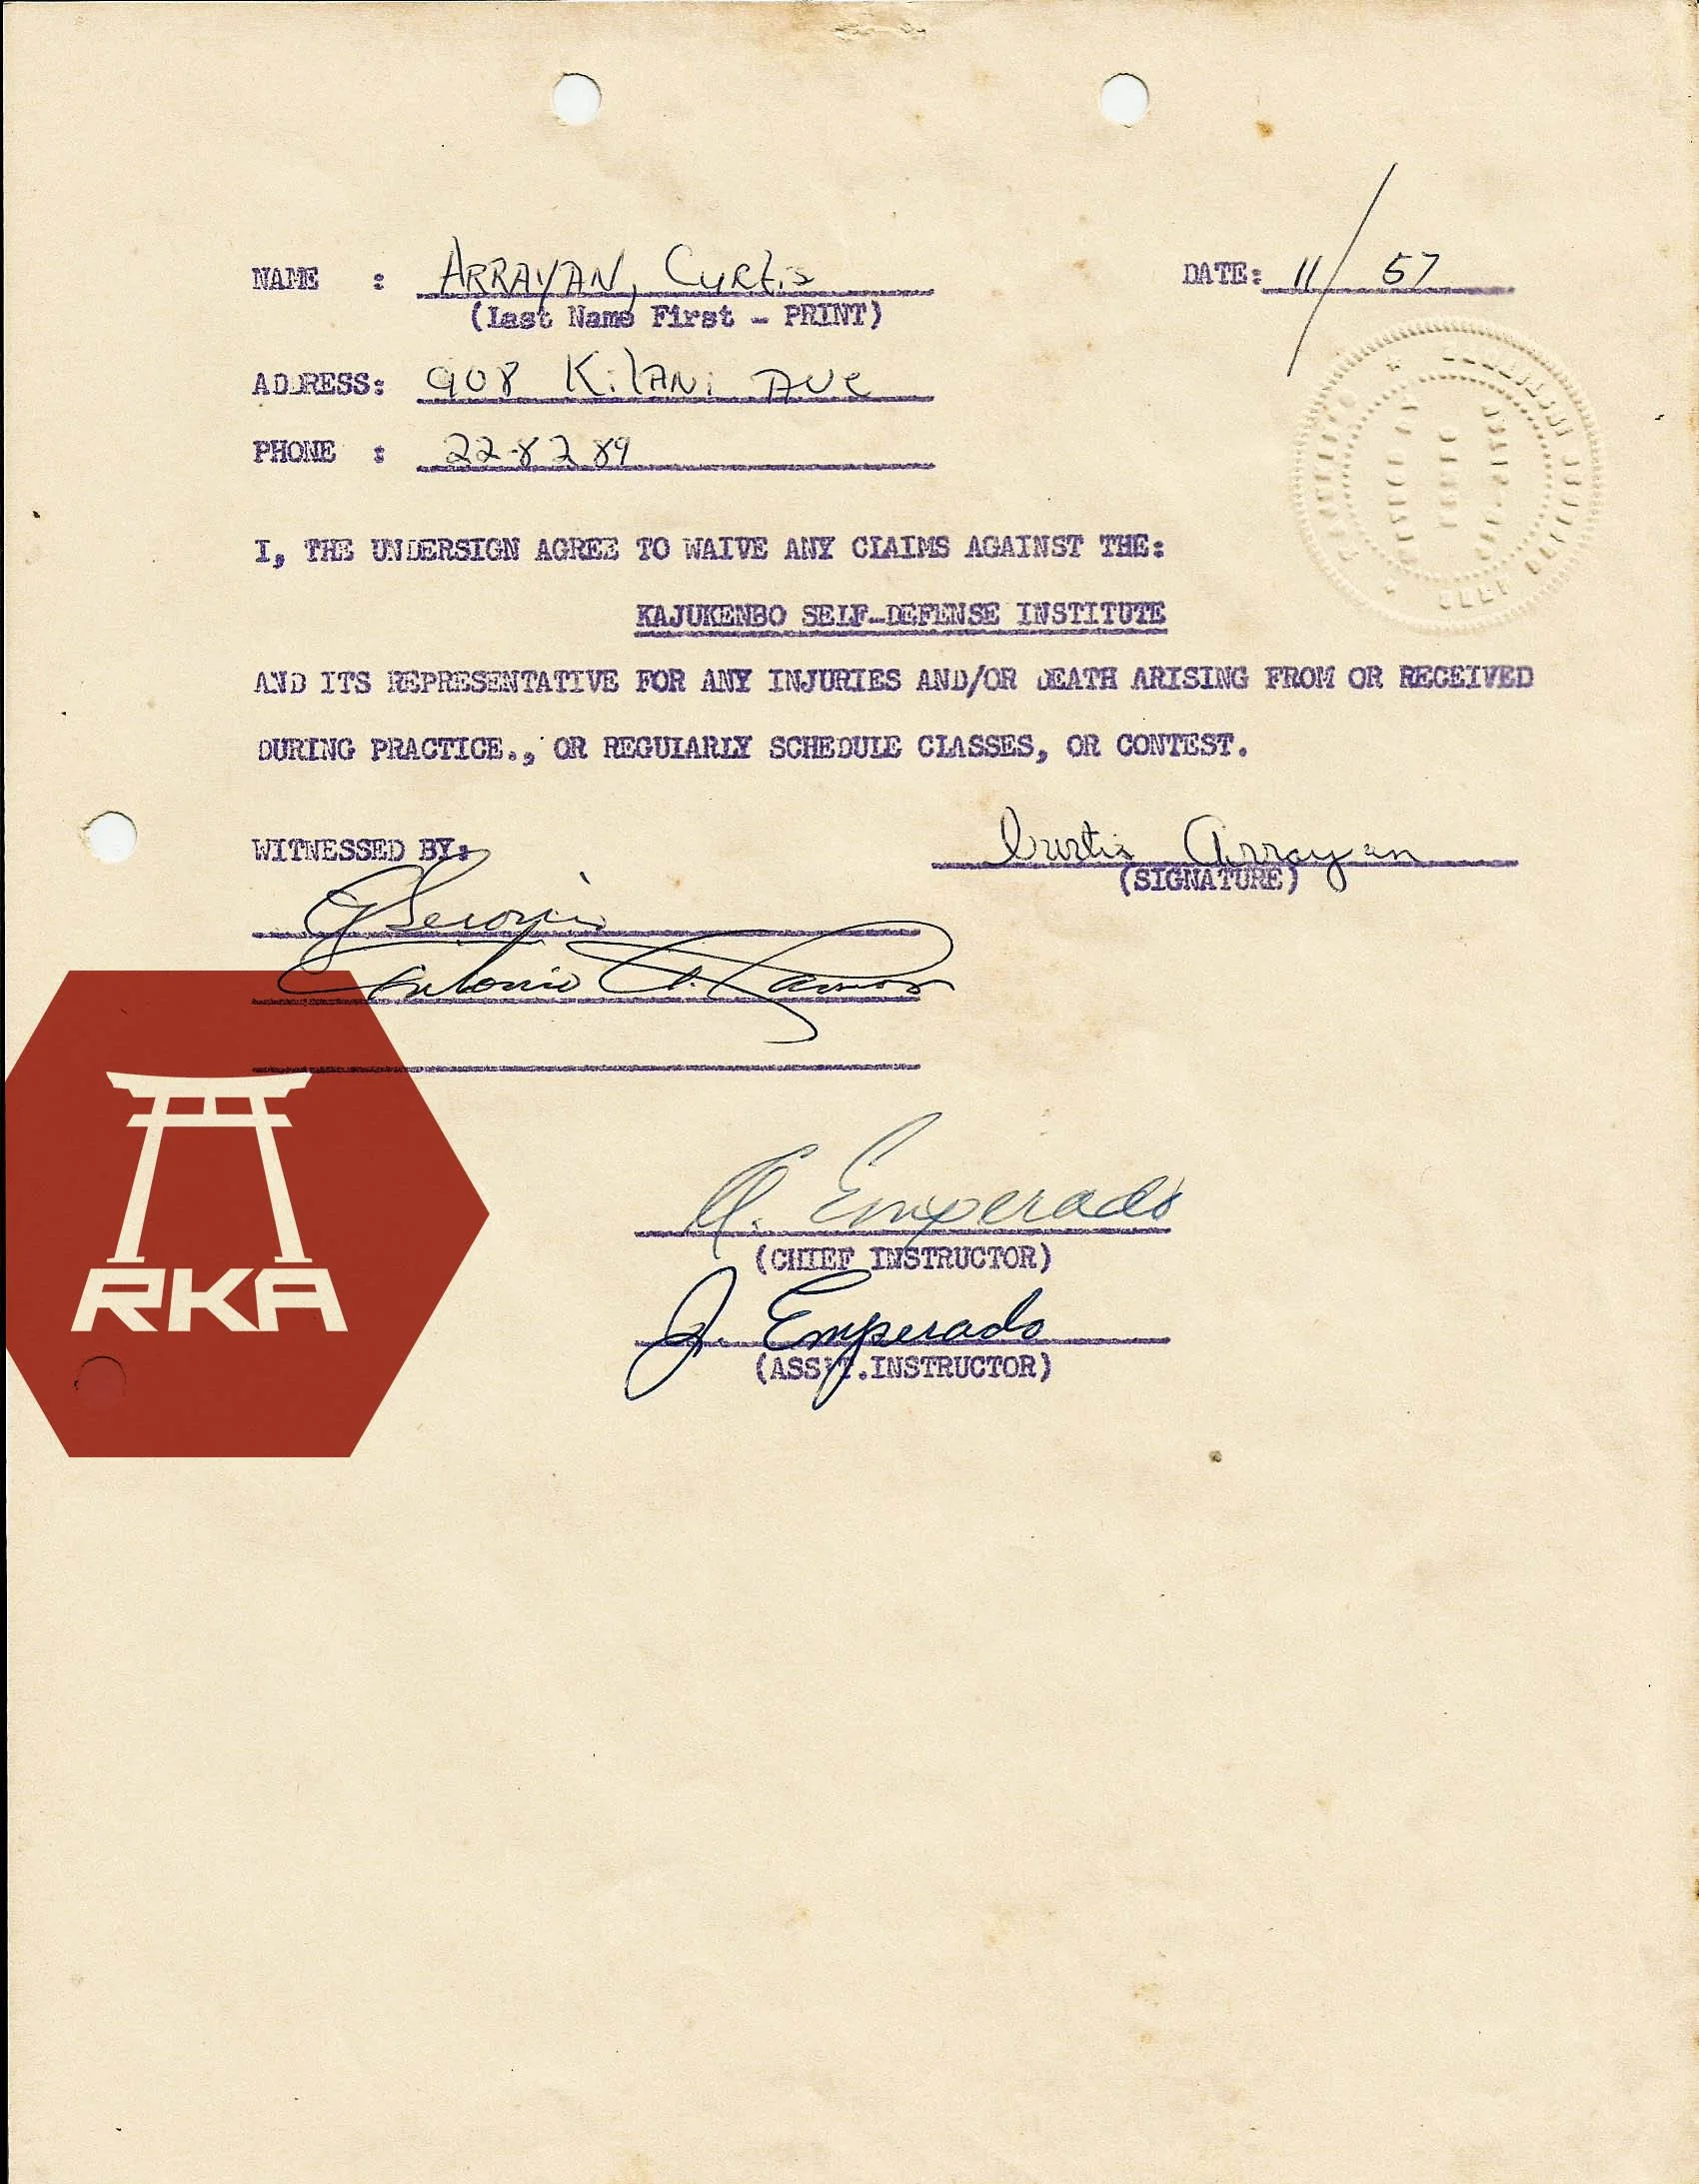 NAME : ARRAYAN, Curtis DATE: 11/57
(Last Name First - PRINT)
ADDRESS: 908 Kilani Ave
PHONE : 22-8289
I, THE UNDERSIGN AGREE TO WAIVE ANY CLAIMS AGAINST THE:
KAJUKENBO SELF-DEFENSE INSTITUTE
AND ITS REPRESENTATIVE FOR ANY INJURIES AND/OR DEATH ARISING FROM OR RECEIVED
DURING PRACTICE., OR REGULARLY SCHEDULE CLASSES, OR CONTEST.
WITNESSED BY: Curtis Arrayan
(SIGNATURE)
Antonio A. Ramos
RKA
A. Emperado
(CHIEF INSTRUCTOR)
J. Emperado
(ASS'T.INSTRUCTOR)